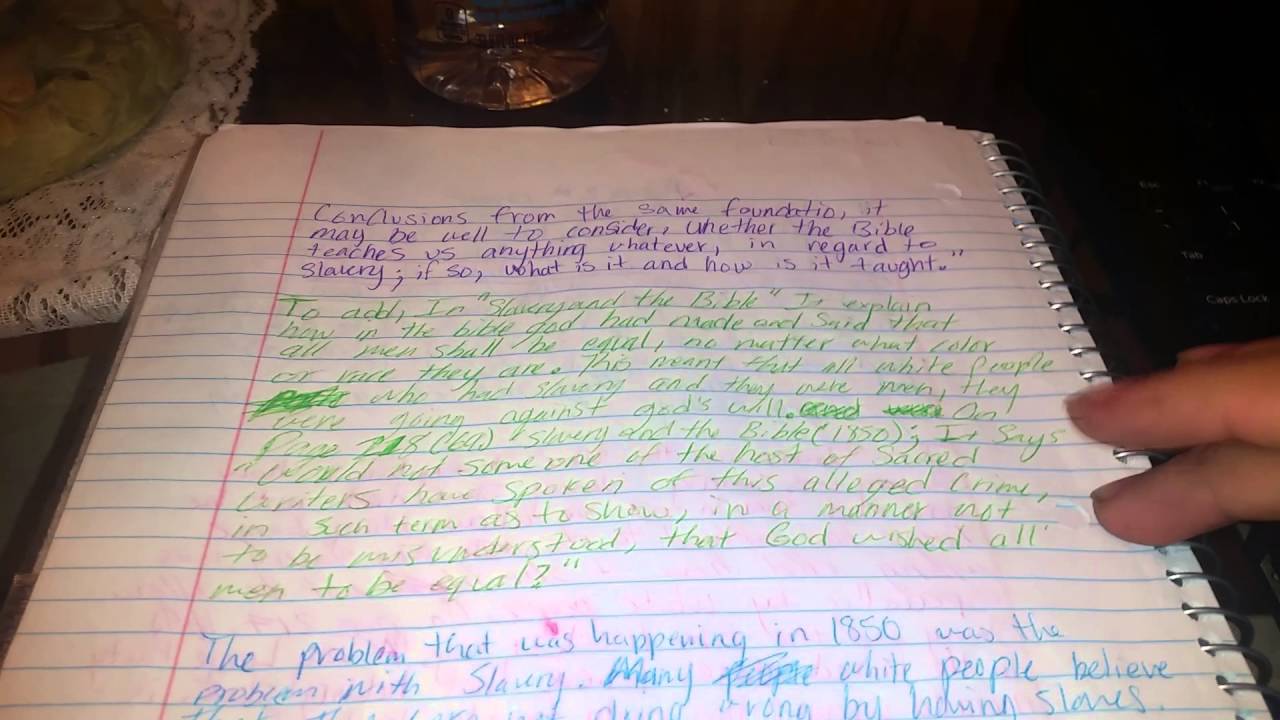 Conclusions from the same foundatio, it
may be well to consider, whether the Bible
teaches us anything whatever, in regard to
Slavery; if so, what is it and how is it taught."
To add, In "Slavery and the Bible" It explain
how in the bible god had made and said that
all men shall be equal, no matter what color
or race they are. This meant that all white people
who had slavery and they were men, they
were going against god's will. On
Page 718 "Slavery and the Bible (1850); It says
"Would not some one of the host of Sacred
Writers have spoken of this alleged Crime,
in such term as to show, in a manner not
to be misunderstood, that God wished all
men to be equal?"
The problem that was happening in 1850 was the
problem with Slavery. Many white people believe
that they are not doing wrong by having slaves.
Esc
Tab
Caps Lock